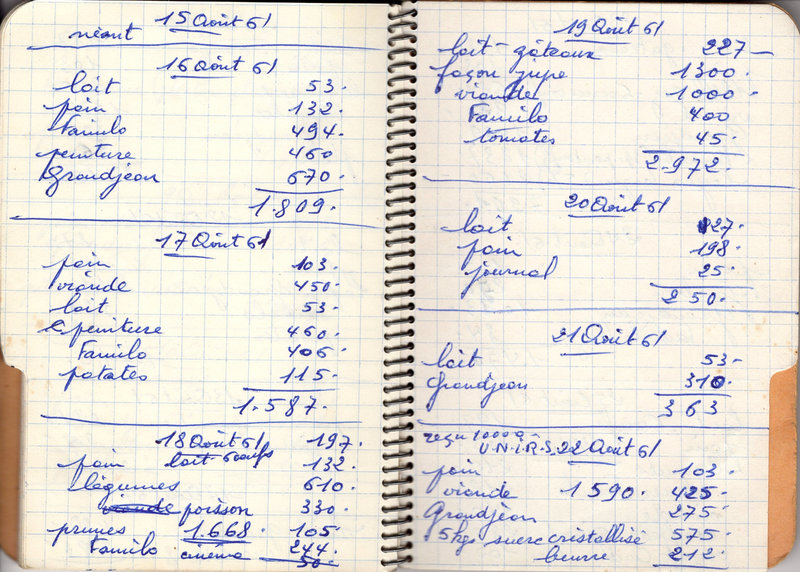 15 Août 61
néant
16 Août 61
lait 53.
pain 132.
Familo 494.
peinture 460
Grandjean 670.
1.809.
17 Août 61
pain 103.
viande 450.
lait 53.
peinture 460.
Familo 406.
patates 115.
1.587.
18 Août 61 197.
lait 6 oeufs
pain 132.
légumes 610.
viande poisson 330.
prunes 1.668. 105
Familo cinéma 244.
50.
19 Août 61
lait - gâteaux 227
façon jupe 1300.
viande 1000.
Familo 400
tomates 45.
2.972.
20 Août 61
lait 27.
pain 198.
journal 25.
250.
21 Août 61
lait 53
Grandjean 310.
363
reçu 10000
U.N.I.R.S. 22 Août 61
pain 103.
viande 1590. 425.
Grandjean 275.
5 kgs sucre cristallisé 575.
beurre 212.